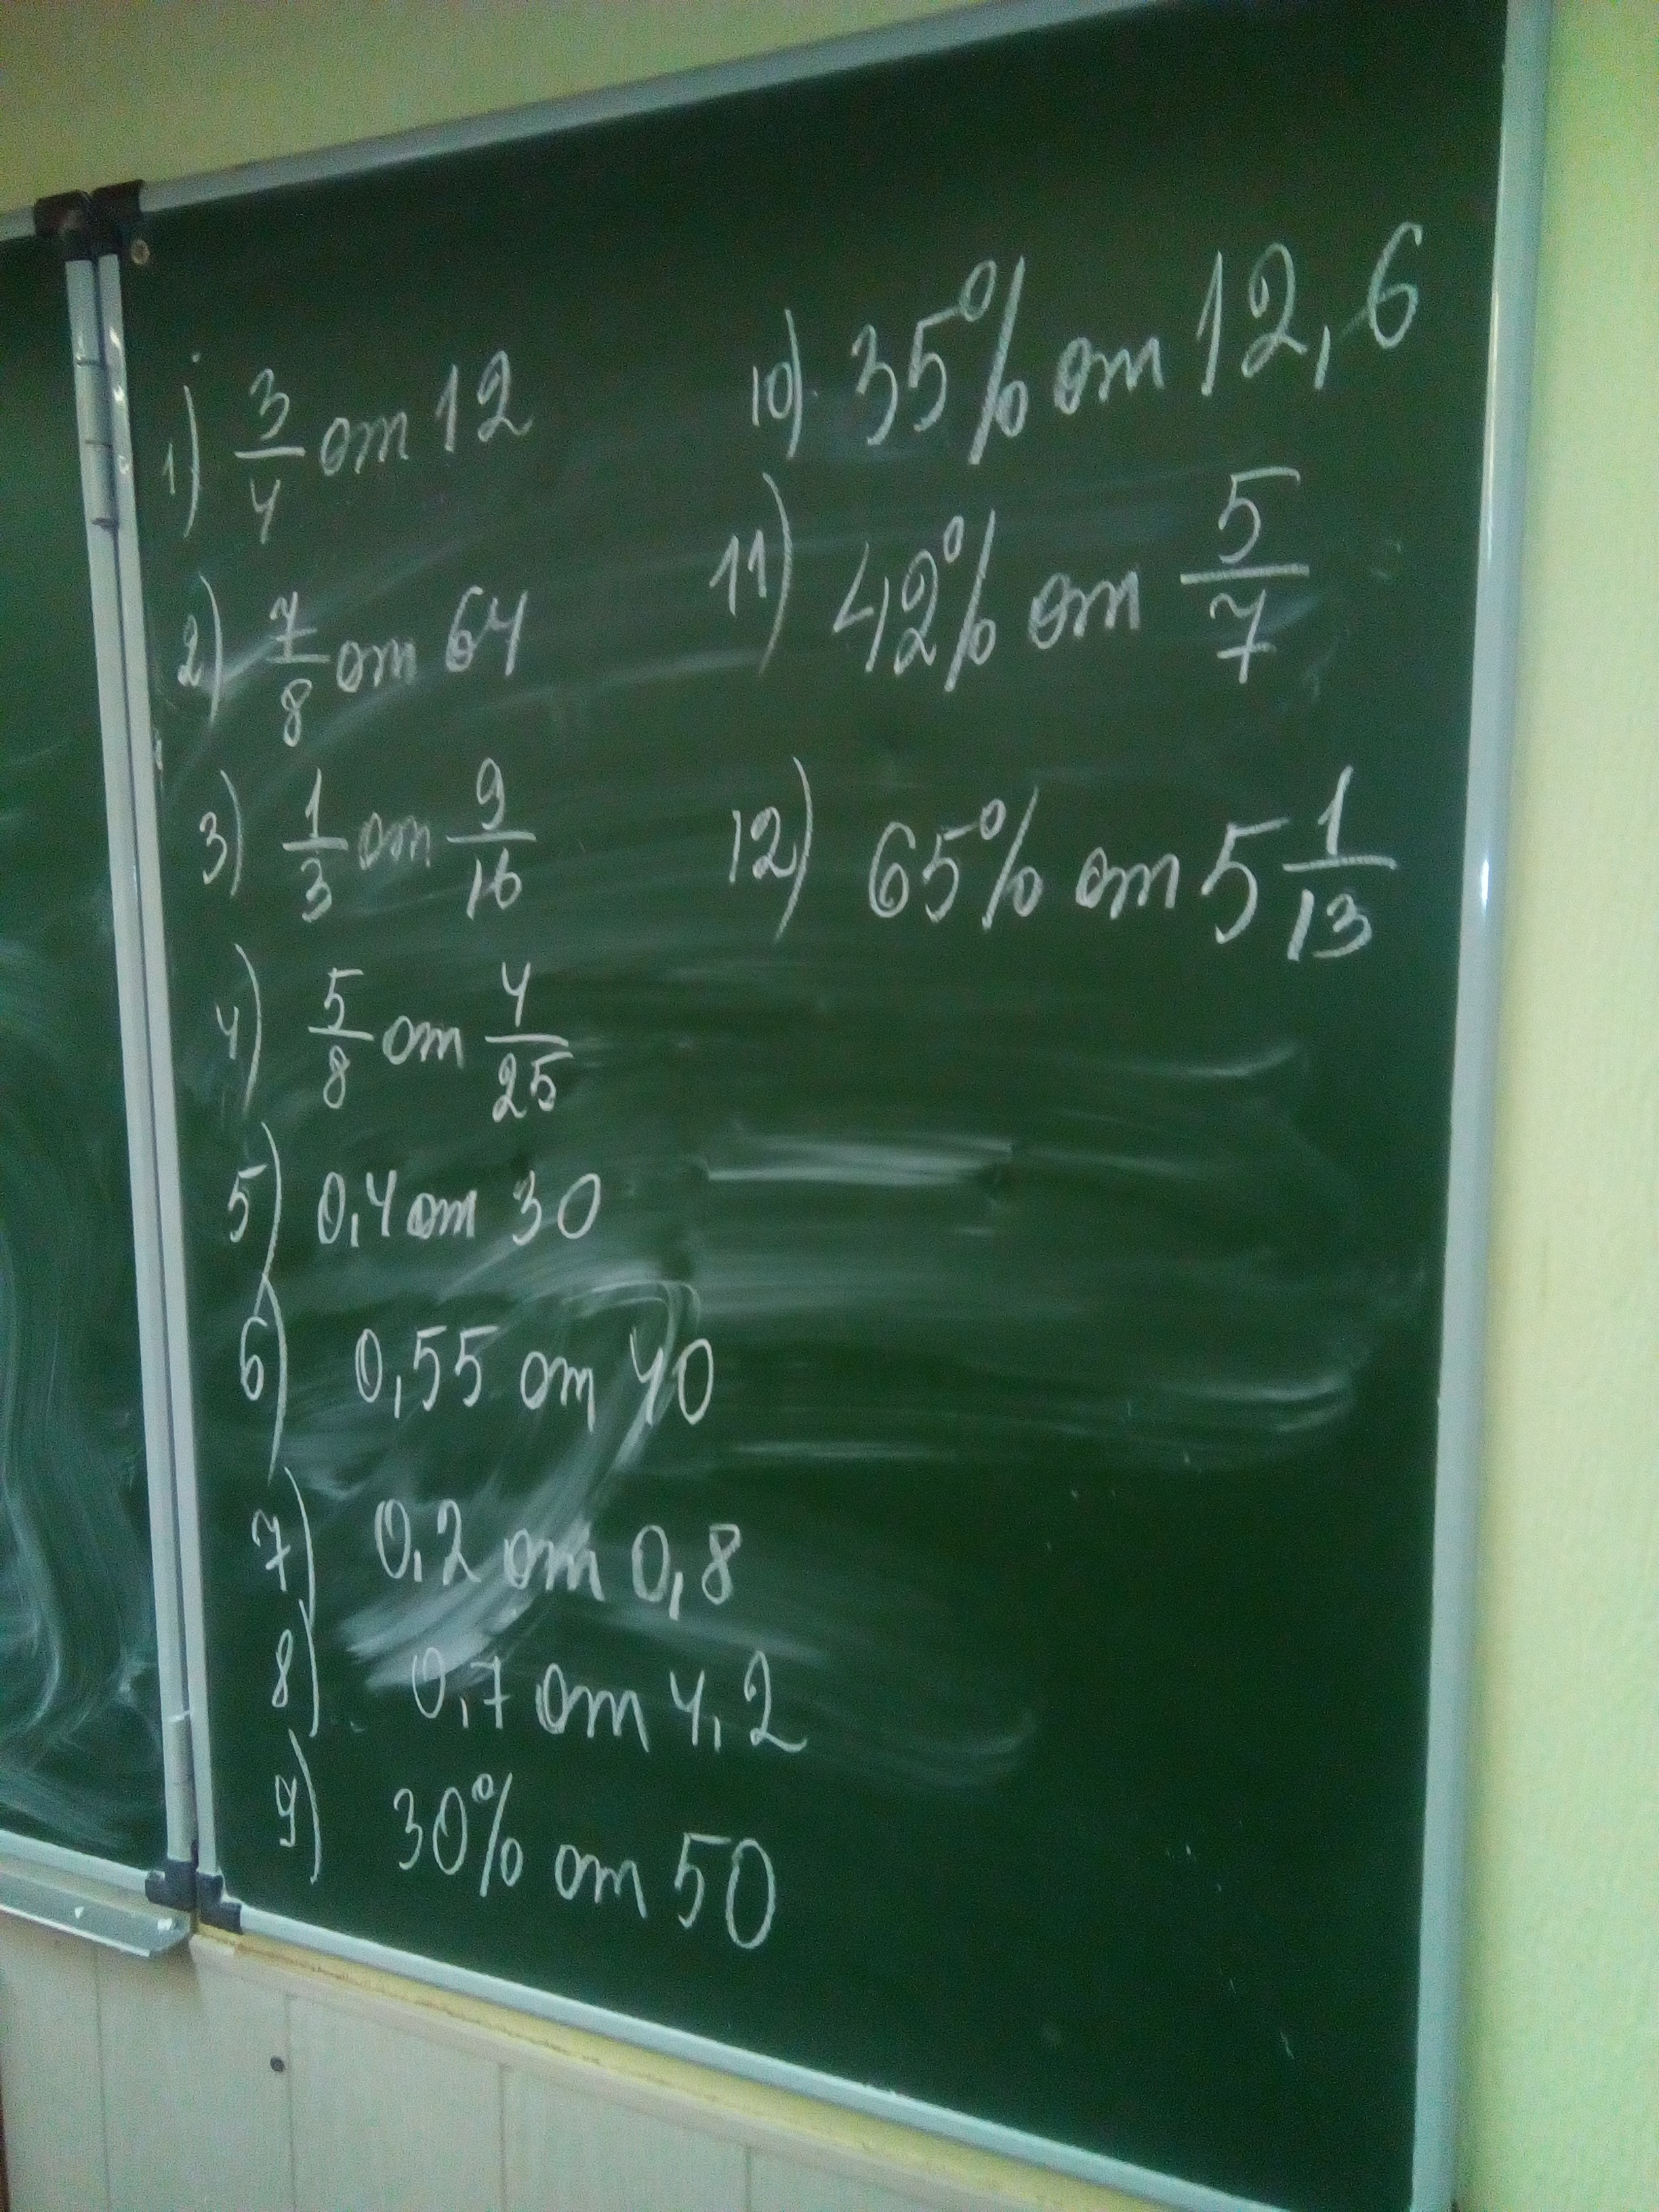 1) 3/4 от 12
2) 7/8 от 64
3) 1/3 от 9/16
4) 5/8 от 4/25
5) 0,4 от 30
6) 0,55 от 40
7) 0,2 от 0,8
8) 0,7 от 4,2
9) 30% от 50
10) 35% от 12,6
11) 42% от 5/7
12) 65% от 5 1/13